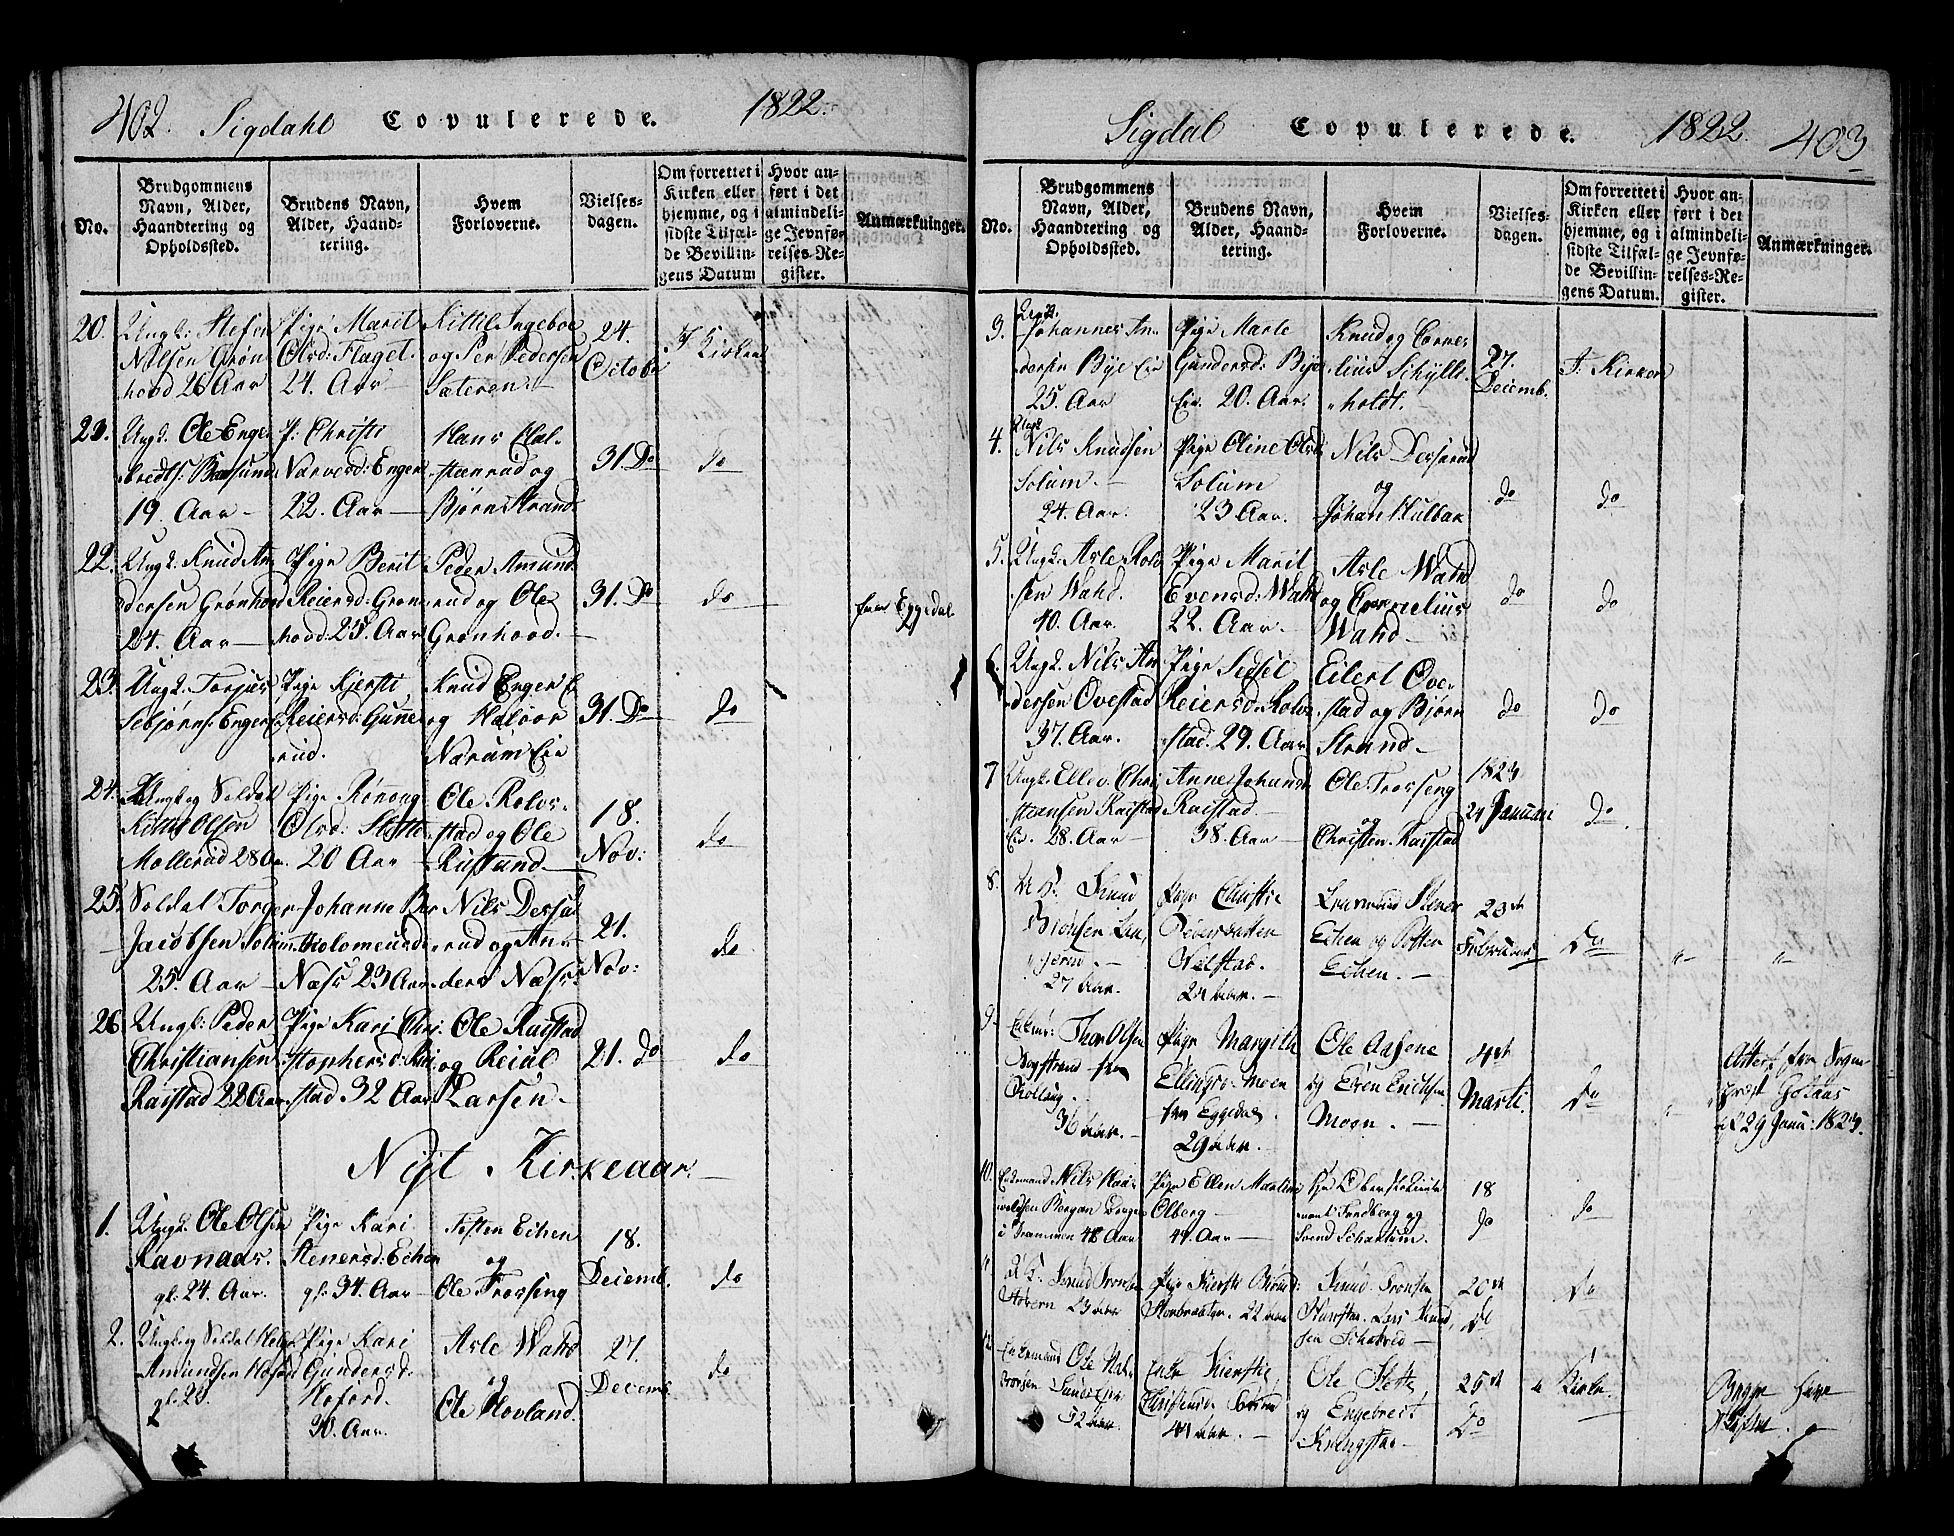 402. Sigdahl Copulerede. 1822.
No.
Brudgommens
Navn, Alder,
Haandtering og
Opholdssted.
Brudens Navn,
Alder, Haand-
tering.
Hvem
Forloverne.
Vielses-
dagen.
Om forrettet i
Kirken eller
hjemme, og i
sidste Tilfæl-
de Bevillin-
gens Datum
Hvor an-
ført i det
almindeli-
ge Jevnfø-
relses-Re-
gister.
Anmærkninger.
20. Ungk: Stefen
Nilsen Grøn
hood 26 Aar
Pige Marit
Olsd: Flaget
24. Aar
Kittil Ingeboe
og Per Pedersen
Sateren.
24.
October
I Kirken
21. Ungk. Ole Enge
bredts: Baasund
19. Aar
P: Christi
Narvesd: Enger
22. Aar
Hans Hal-
steenrud og
Bjørn Strand
31 Do
do
22. Ungk. Knud An
dersen Grønhood
24. Aar
Pige Berit
Reiersd: Grøn
hood. 25. Aar
Peder Amund
rud og Ole
Grønhood.
31. Do
do
fra Eggedal
23. Ungk. Torjus
Sebjørns: Enger E
Pige Kjersti
Reiersd: Gunne
rud.
Knud Enger E
og Halvor
Narum Eie
31. Do
do
24. Ungk og Soldat
Kittil Olsen
Mollerud 28 Aar
Pige Rønnoug
Olsd: Slette
20 Aar
Ole Rolvs-
stad og Ole
Rustand
18.
Nov:
do
25. Soldat Torger
Jacobsen Solum
25. Aar
Johanne Bar
tholomeusd
Næss 23 Aar
Nils Dersa
rud og An-
ders Næss
21.
Nov:
do
26. Ungk: Peder
Christiansen
Raistad 22 Aar
Pige Kari Chri
stophersd: Rai
stad 32 Aar
Ole Raistad
og Reial
Larsen.
21. do
do
Nyt Kirkeaar.
1. Ungk. Ole Olsen
Ravnaas.
gl: 24. Aar.
Pige Kari
Stenersd: Echen
gl: 34. Aar
Tosten Echen
og
Ole Frøsseng
18.
Decemb.
do
2. Ungk og Soldat
Amundsen
gl: 23.
Pige Kari
Gundersd:
Hofoerd.
30. Aar.
Asle Wahd
og
Ole Hovland.
27.
Decemb.
do
Sigdal Copulerede. 1822. 403
No.
Brudgommens
Navn, Alder,
Haandtering og
Opholdssted.
Brudens Navn,
Alder, Haand-
tering.
Hvem
Forloverne.
Vielses-
dagen.
Om forrettet i
Kirken eller
hjemme, og i
sidste Tilfæl-
de Bevillin-
gens Datum.
Hvor an-
ført i det
almindeli-
ge Jevnfø-
relses-Re-
gister.
Anmærkninger.
3. Ungk.
Johannes An-
dersen Bye Eie
25. Aar
Pige Marte
Gundersd: Bye
Eie. 20. Aar.
Knud og Corne-
lius Schyllt-
holdt.
27.
Decemb.
I. Kirken
4. Ungk
Nils Knudsen
Solum.
24. Aar.
Pige Oline Olsd
Solum
23 Aar.
Nils Dersarud
og
Johan Hulbak
do
do
5. Ungk. Asle Rolv
sen Wahd.
40. Aar.
Pige Marit
Evensd: Wahd
22. Aar.
Asle Wahd
og Cornelius
Wahd
do
do
6. Ungk. Nils An
dersen Ovestad
37. Aar.
Pige Sidsel
Reiersd: Rolv
stad. 29. Aar
Eilert Ove-
stad og Bjørn
Strand
do
do
7 Ungk. Ellev Chri
stiansen Raistad
Eie. 28. Aar
Anne Johansd
Raistad
38. Aar
Ole Frøsseng
og
Christen Raistad
1823
24 Januari
do
8. Knud
Biønsen
27 Aar.
Pige Christie
Pedersdatter
Velstad.
24 Aar.
Stener
Echen og Tosten
Echen.
23de
Februari
Do
9. Enkem: Thor Olsen
Bogstrand fra
Rolloug.
36 Aar.
Pige Margith
Ellingsd. Moen
fra Eggedal
29 Aar.
Ole Aasene
og Even Erichsen
Moen.
4de
Marti.
Do
Attest fra
Provst
af 29 Janu: 1823.
10. Enkemand Nils Haa-
woldsen Bergan
i Drammen 48 Aar
Pige Ellen Martine
Olberg
44. Aar
Hr Oberstelieute
nant Sundberg og
Svend Schartum.
18
do
do
11 Knud
23 Aar
Pige Kiersti
22 Aar
Knud
20de
Do
Do
12. Enkemand Ole
52 Aar
Enke Kierstie
Christensd:
44 Aar.
Ole Slette
og Engebret
Kringstad
25de
Do
Kirken.